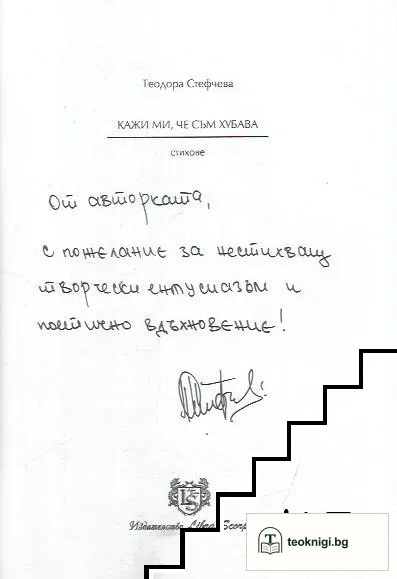 Теодора Стефчева
КАЖИ МИ, ЧЕ СЪМ ХУБАВА
стихове
От авторката,
с пожелание за нестихващ
творчески ентусиазъм и
поетично вдъхновение!
LS
Издателство Libra Scorp
T
teoknigi.bg